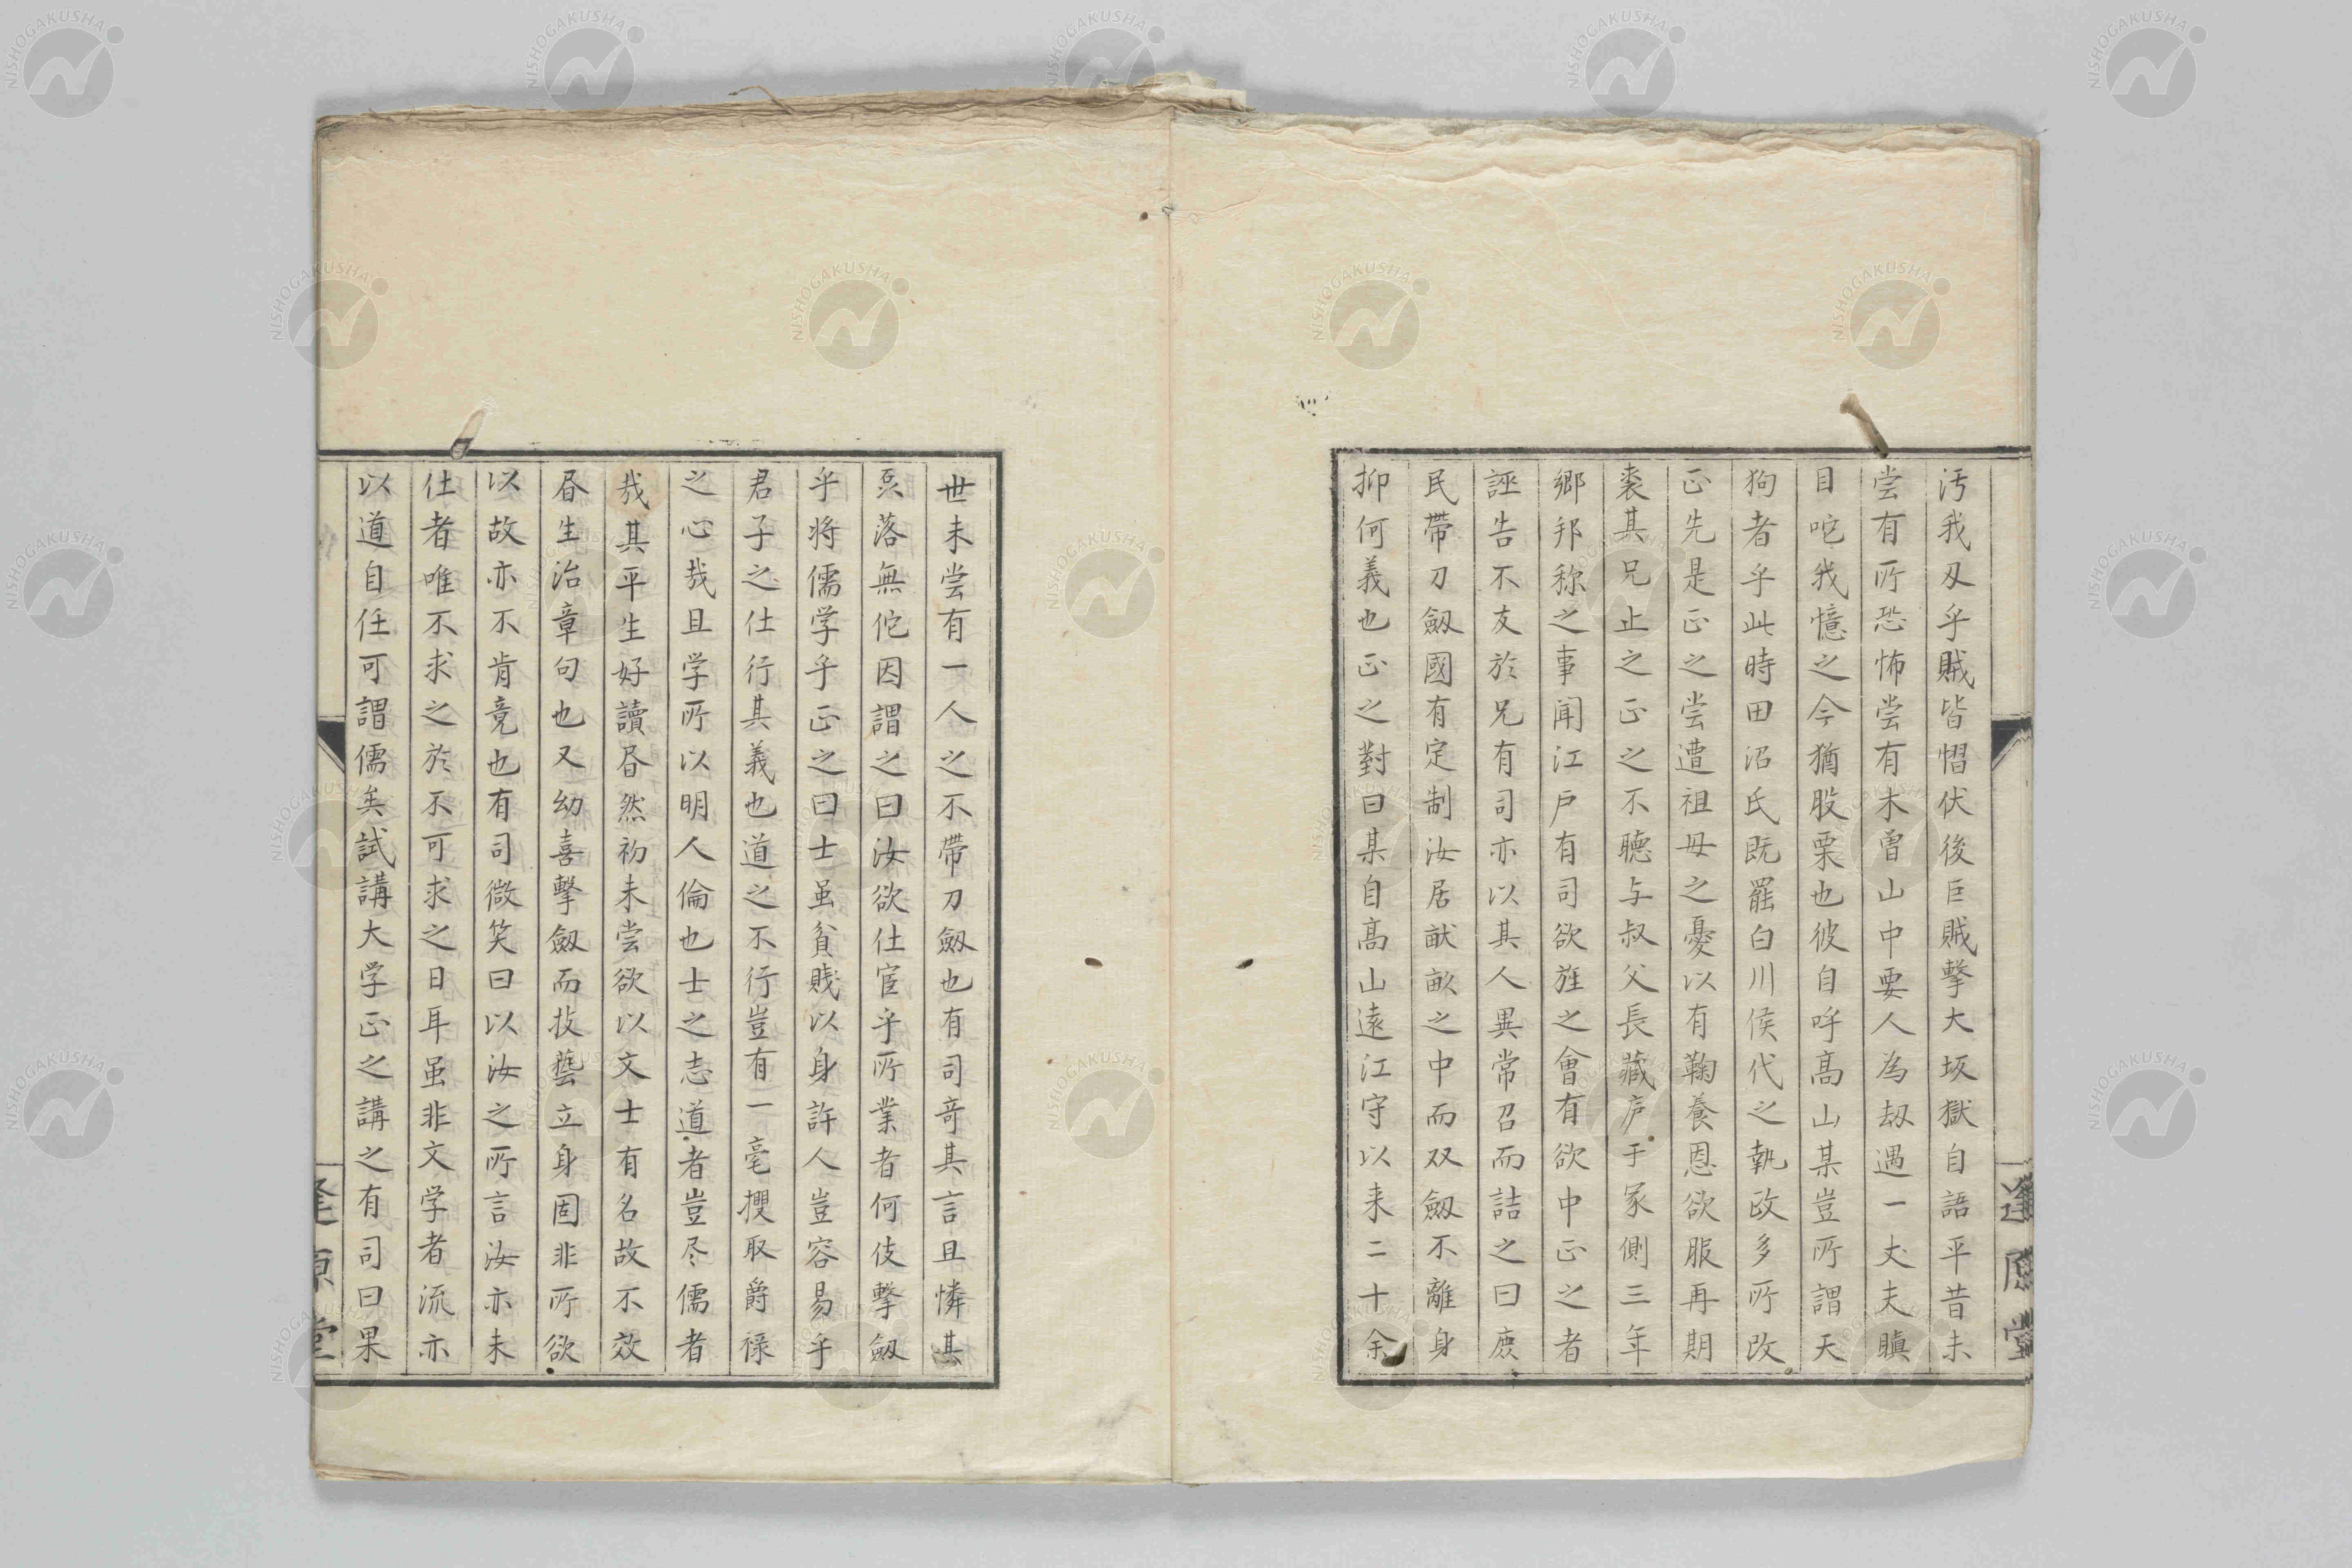 汚我刄乎賊皆慴伏後巨賊撃大坂獄自語平昔未
尝有所恐怖尝有木曽山中要人為刼遇一丈夫瞋
目咤我憶之今猶股栗也彼自呼髙山某豈所謂天
狗者乎此時田沼氏既罷白川侯代之執政多所改
正先是正之尝遭祖母之憂以有鞠養恩欲服再期
裘其兄止之正之不聴与叔父長藏庐于冢側三年
郷邦称之事聞江戸有司欲旌之會有欲中正之者
誣告不友於兄有司亦以其人異常召而詰之曰庶
民帶刀劔國有定制汝居畎畝之中而双劔不離身
抑何義也正之對曰某自髙山遠江守以来二十余
世未尝有一人之不帶刀劔也有司竒其言且憐其
落無佗因謂之曰汝欲仕宦乎所業者何伎撃劔
乎将儒学乎正之曰士虽貧賎以身許人豈容易乎
君子之仕行其義也道之不行豈有一毫攫取爵禄
之心哉且学所以明人倫也士之志道者豈尽儒者
哉其平生好讀昼然初未尝欲以文士有名故不效
昼生治章句也又幼喜撃劔而技藝立身固非所欲
以故亦不肯竟也有司微笑曰以汝之所言汝亦未
仕者唯不求之於不可求之日耳虽非文学者流亦
以道自任可謂儒矣試講大学正之講之有司曰果
逢原堂
逢原堂
NISHOGAKUSHA